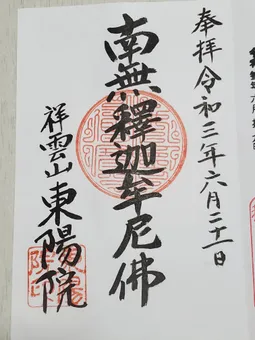 奉拝 令和三年六月二十一日
南無釋迦牟尼佛
祥雲山 東陽院